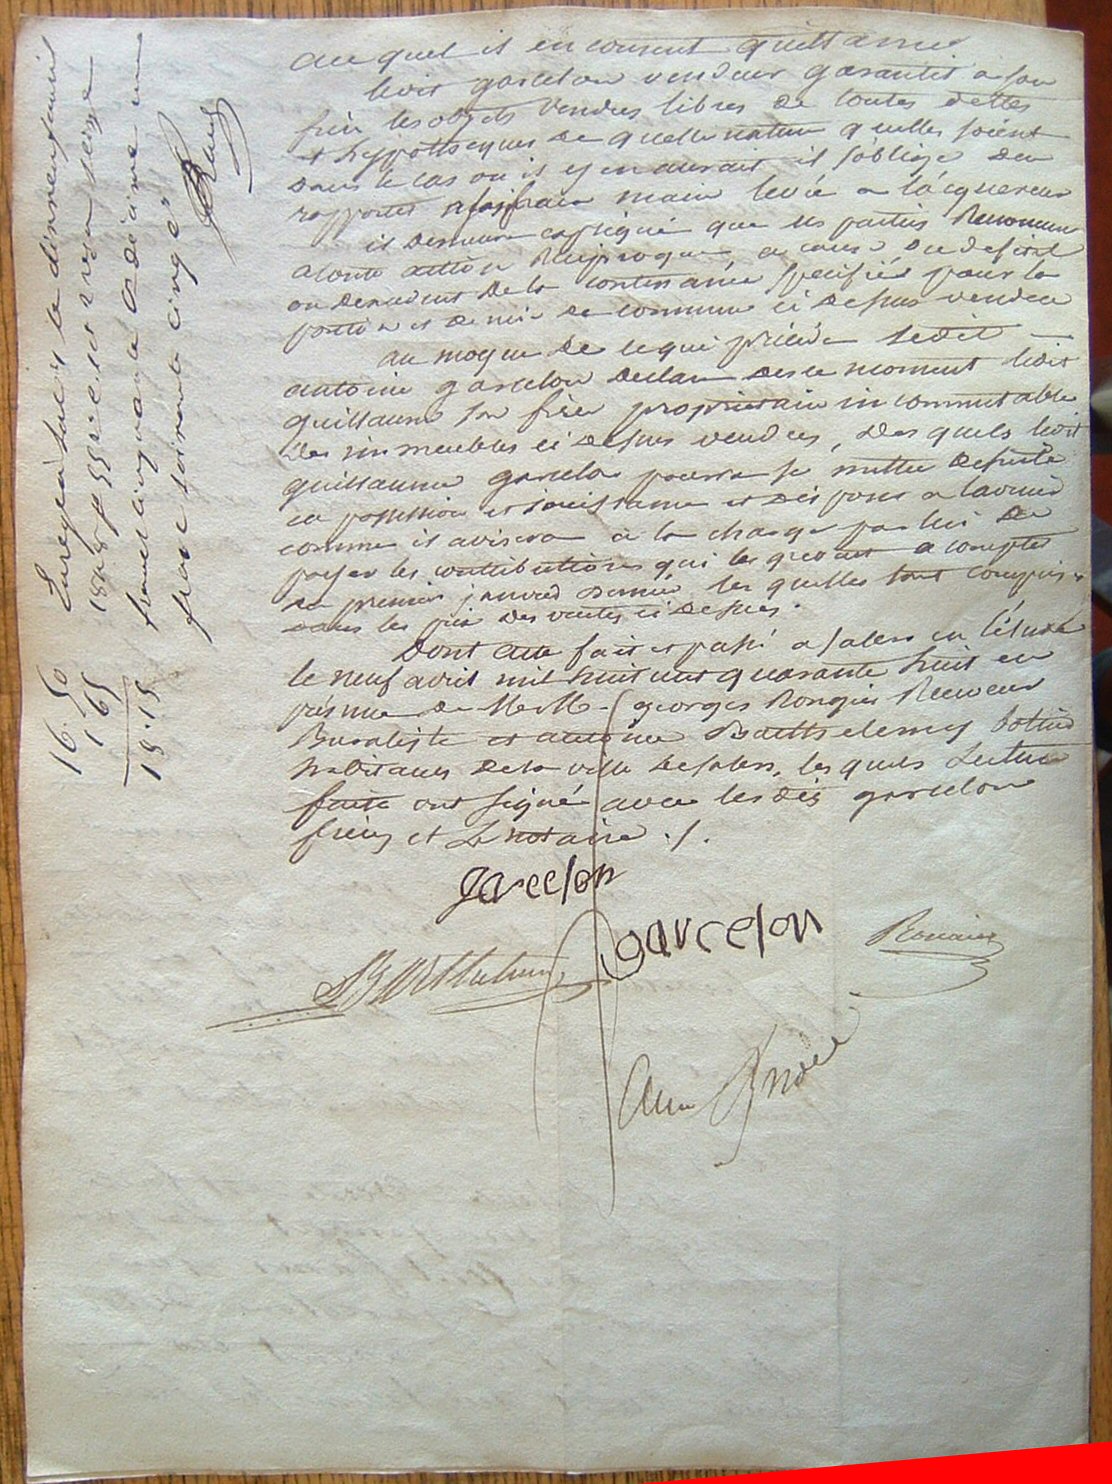 au quel il en consent quittance
ledit garcelon vendeur garantit a son
frère les objets vendus libres de toutes dettes
et hyppothéques de quelle nature quelles soient
dans le cas ou il y en aurait il s'oblige d'en
rapporter a ses frais main levée a l'acquereur
il demeure expliqué que les parties Renoncent
a toute action Réciproque, a cause du deficit
ou de la contenance specifiée pour la
portion de commun ci dessus vendue
au moyen de ce qui précéde ledit
antoine garcelon declare des ce moment ledit
guillaume son frère propriétaire incommutable
des immeubles ci dessus vendus, desquels ledit
guillaume garcelon pourra se mettre de suite
en possession et jouissance et disposer a l'avenir
comme il avisera a la charge par lui de
payer les contributions qui les grevent a compter
du premier janvier dernier les quelles sont comprises
dans les prix des ventes ci dessus.
Dont acte fait et passé a salers en l'étude
le neuf avril mil huit cent quarante huit en
présence de MM. georges Rongier Receveur
Buraliste et antoine Barthelemy bottier
habitants de la ville de salers, les quels Lecture
faite ont signé avec les dits garcelon
frères et Le notaire ./.
garcelon
garcelon
Barthelemy
Enregistré à salers le dix neuf avril
1848 f° 55 v° et reçu seize
francs cinquante c° décime un
franc soixante cinq c°
16.50
1.65
18.15